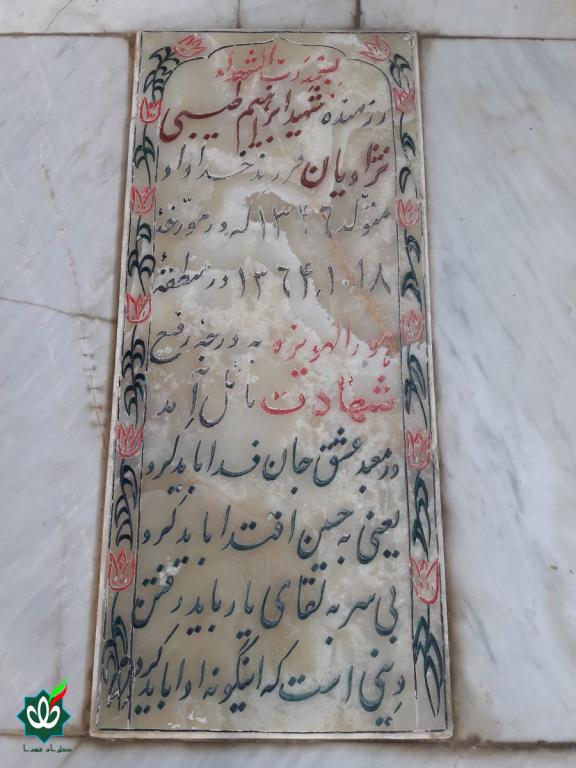 بسمه رب الشهداء
رزمنده شهید ابراهیم طیبی
نژادیان فرزند خداداد
متولد ۱۳۴۶ که در مورخهٔ
۱۳۶۴،۱۰،۱۸ در منطقهٔ
هورالهویزه به درجه رفیع
شهادت نائل آمد
در معبد عشق جان فدا باید کرد
یعنی به حسین اقتدا باید کرد
بی سر به لقای یار باید رفتن
دینی است که اینگونه ادا باید کرد